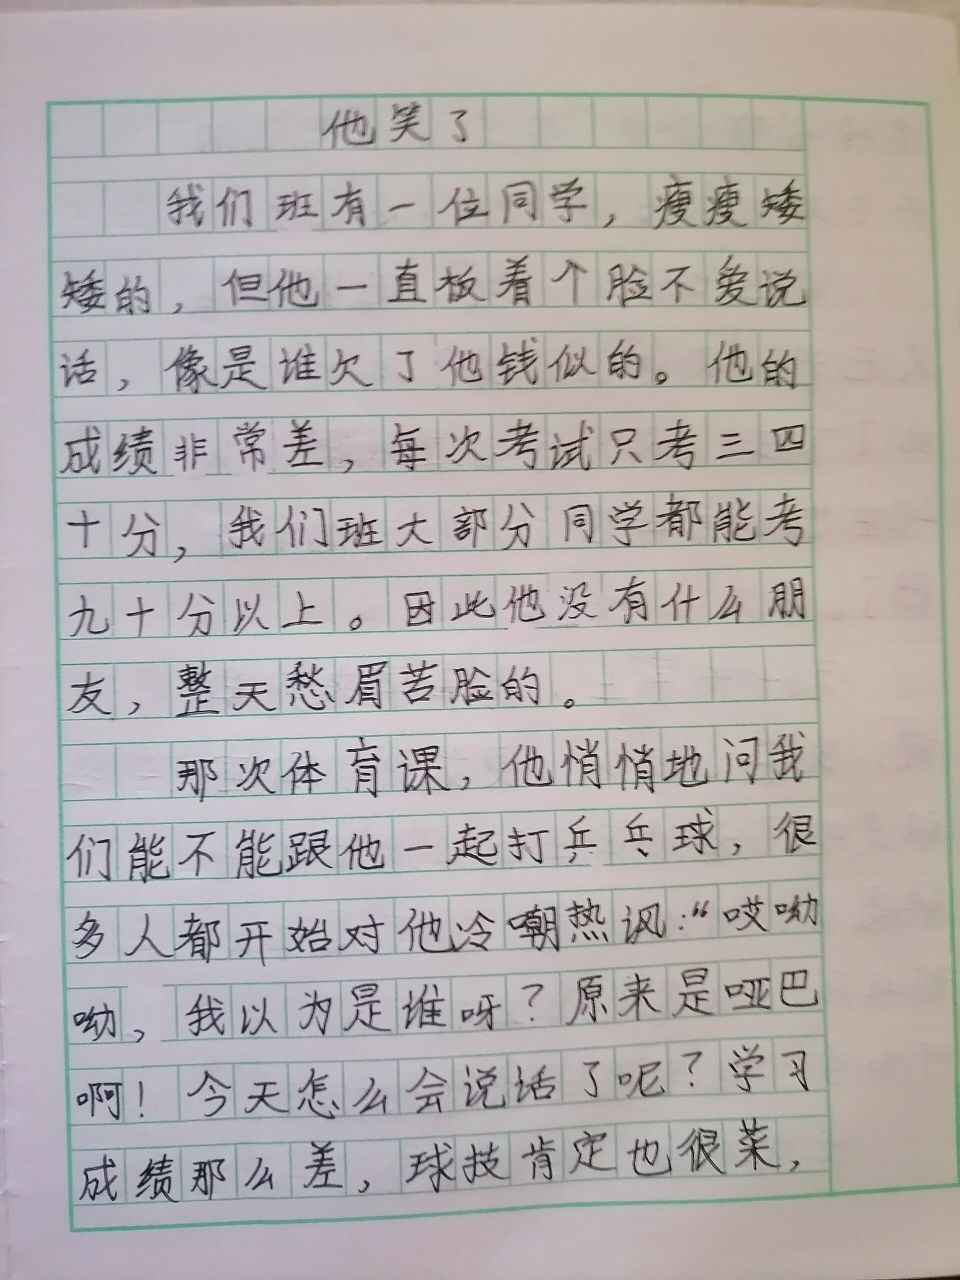 他笑了
我们班有一位同学，瘦瘦矮
矮的，但他一直板着个脸不爱说
话，像是谁欠了他钱似的。他的
成绩非常差，每次考试只考三四
十分，我们班大部分同学都能考
九十分以上。因此他没有什么朋
友，整天愁眉苦脸的。
那次体育课，他悄悄地问我
们能不能跟他一起打乒乓球，很
多人都开始对他冷嘲热讽：“哎呦
呦，我以为是谁呀？原来是哑巴
啊！今天怎么会说话了呢？学习
成绩那么差，球技肯定也很菜，